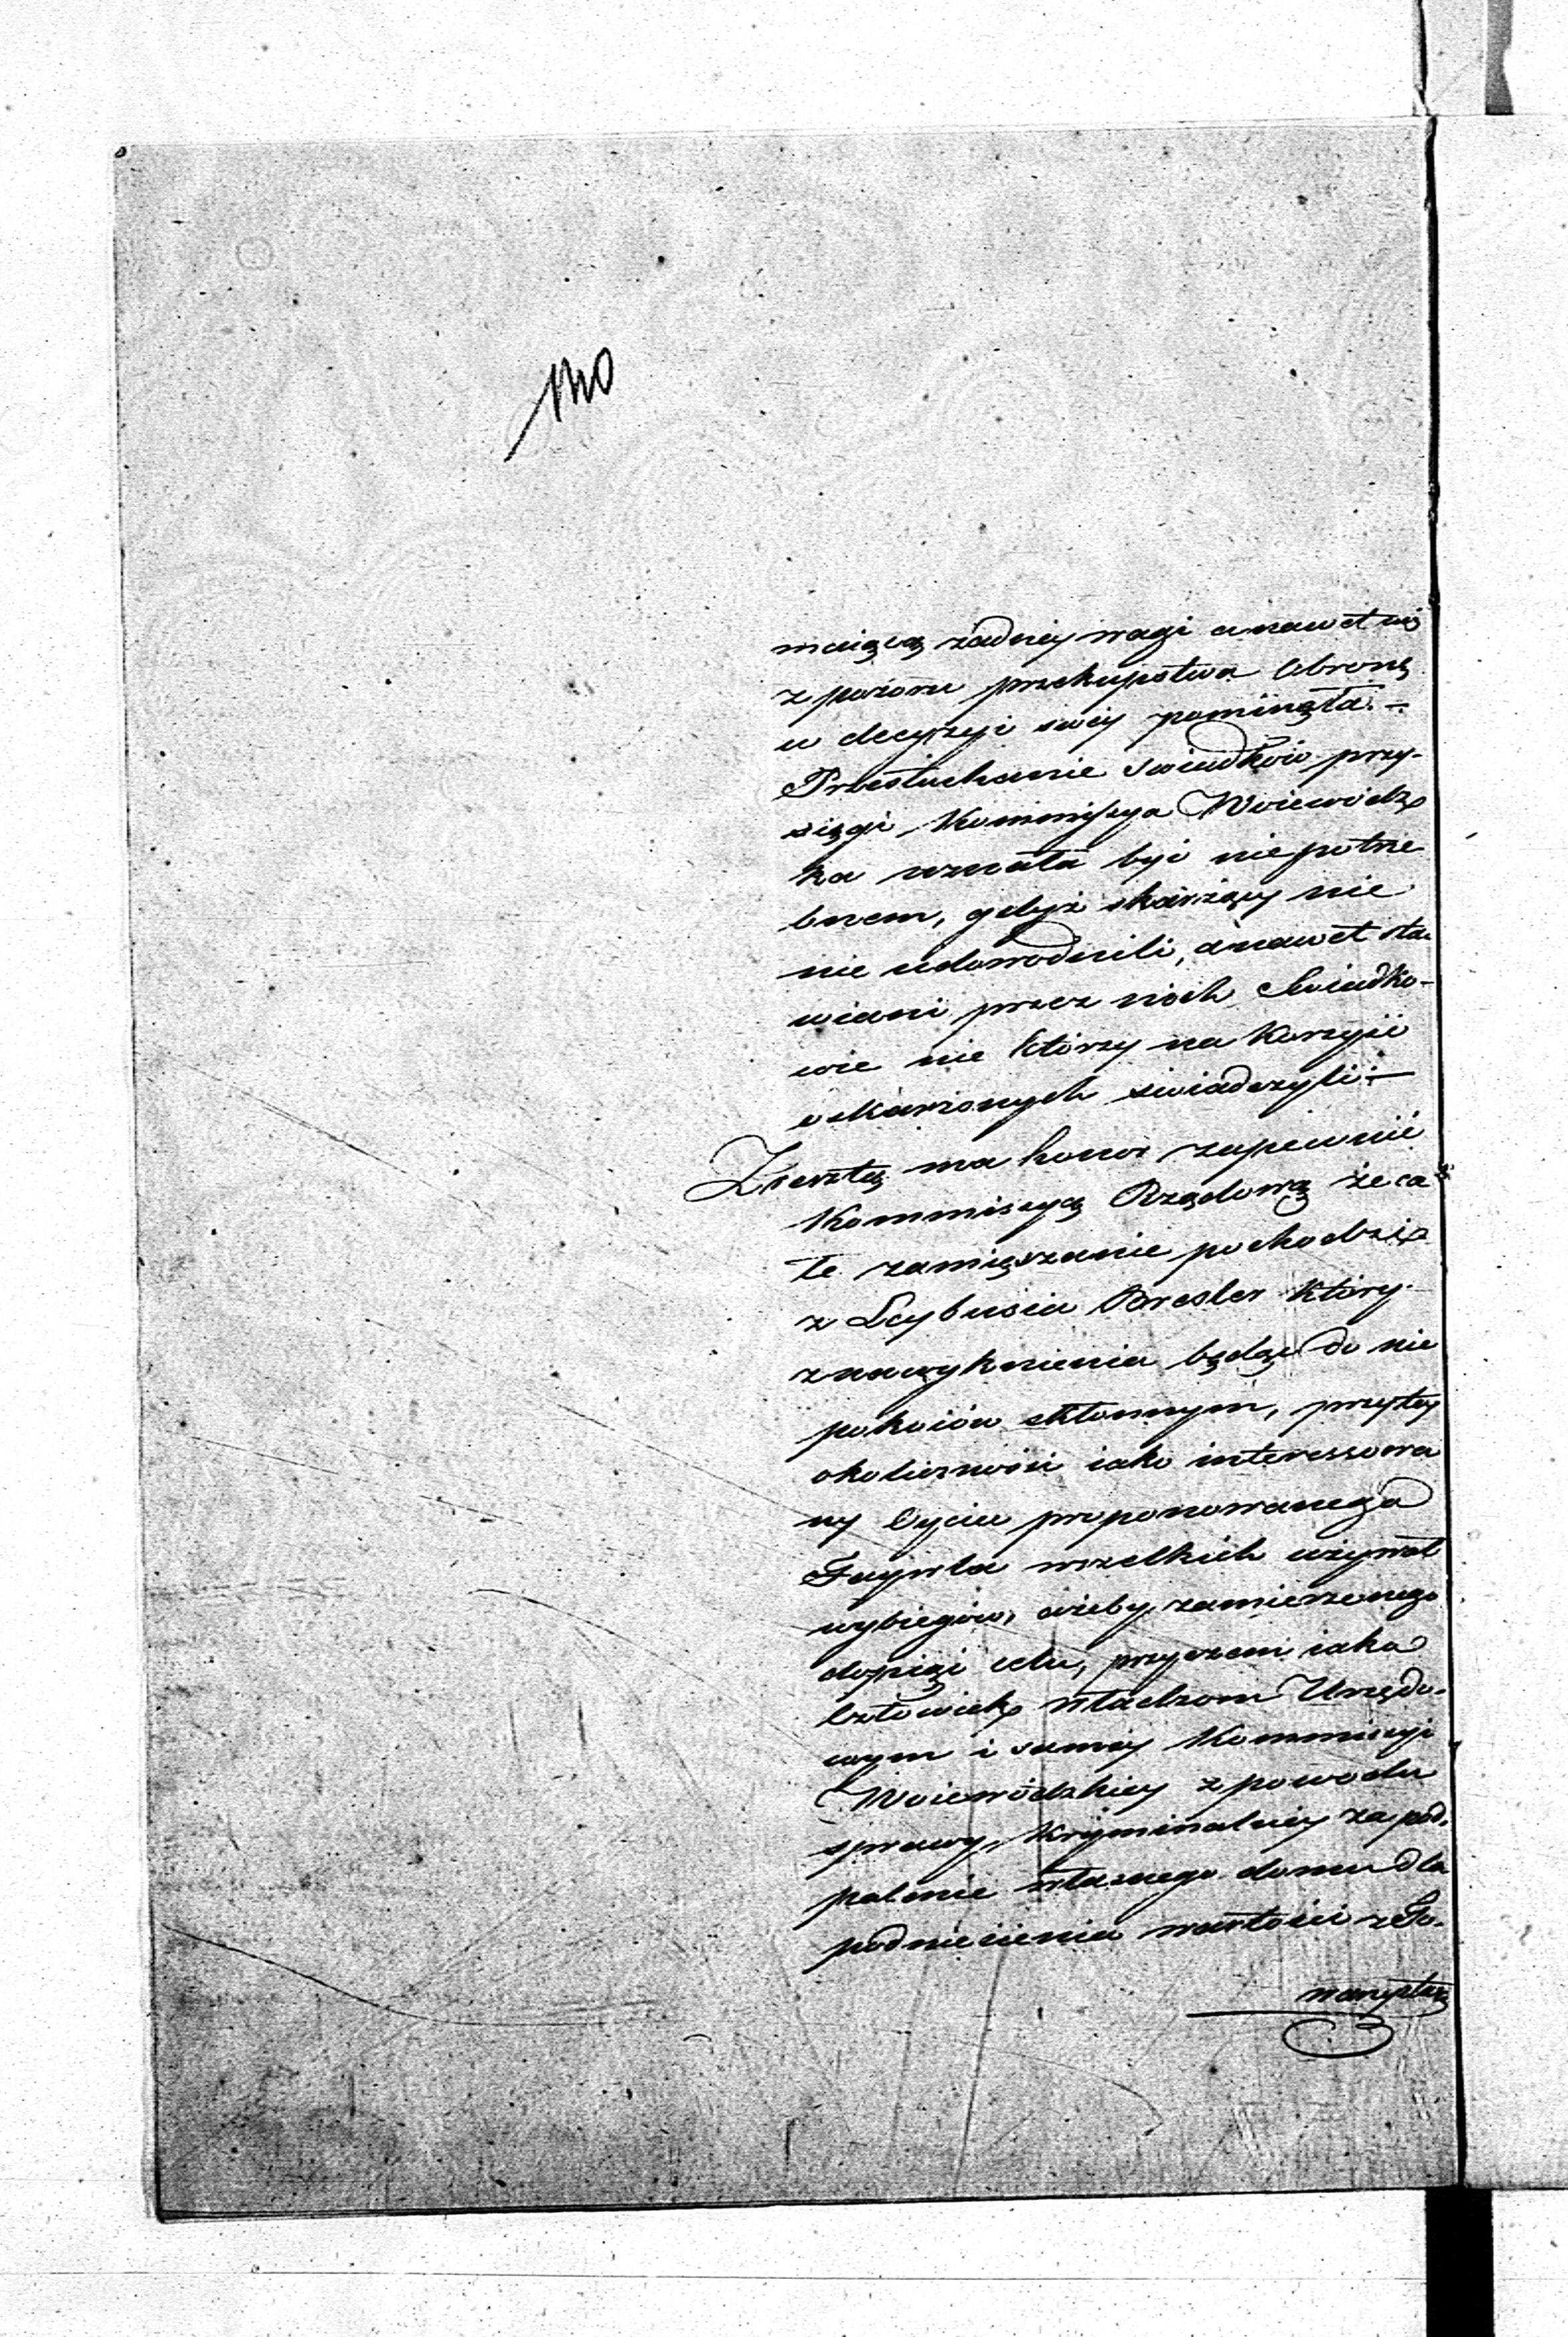 140
maiącą żadney wagi a nawet nic
z pozoru przekupstwa Obronę
w decyzyi swey pominęła. –
Przesłuchanie swiadków przy-
sięgi Kommissya Woiewódz
ka uznała być niepotrze
bnem, gdyż skarżący nie
nie udowodnili, a nawet sta
wiani przez nich Swiadko-
wie nie którzy na korzyść
oskarżonych świadczyli. –
Zresztą ma honor zapewnić
Kommissyą Rządową że ca
łe zamięszanie pochodzi
z Leybusia Bresler który
z nawyknienia będąc do nie
pokoiów skłonnym, przytey
okoliczności iako interessowa
ny Oyciec proponowanego
Faywla wszelkich używał
wybiegów, ażeby zamierzonego
dopiąć celu, przyczem iako
Człowiek Władzom Urzędo-
wym i samey Kommissyi
Woiewódzkiey z powodu
sprawy Kryminalney za pod-
palenie własnego domu dla
podniesienia wartości z To-
warzystwa